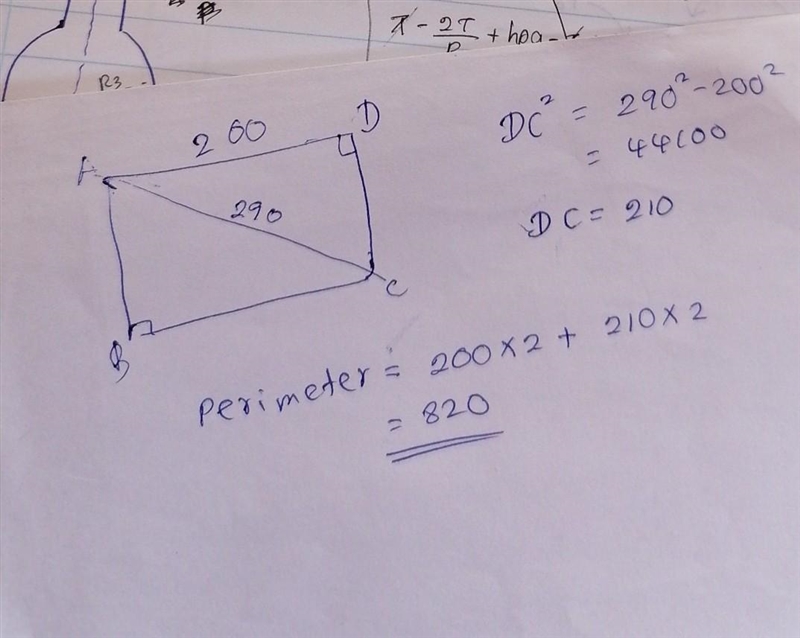 R3
x - 2T/R + hpa
A
200
D
290
C
B
DC² = 290² - 200²
= 44100
DC = 210
Perimeter = 200 × 2 + 210 × 2
= 820